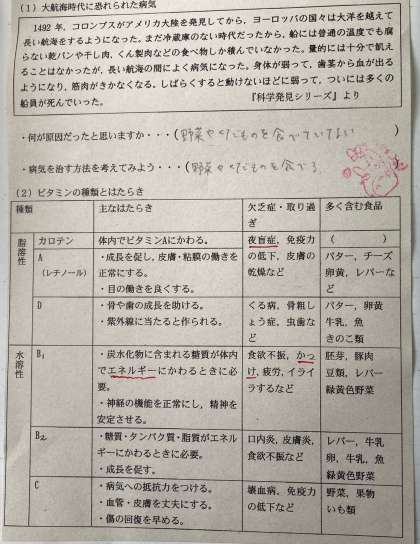 (1) 大航海時代に恐れられた病気
1492年,コロンブスがアメリカ大陸を発見してから,ヨーロッパの国々は大洋を越えて
長い航海をするようになった。まだ冷蔵庫のない時代だったから,船には普通の温度でも腐
らない乾パンや干し肉,くん製肉などの食べ物しか積んでいなかった。量的には十分で飢え
ることはなかったが,長い航海の間によく病気になった。身体が弱って,歯茎から血が出る
ようになり,筋肉がきかなくなる。しばらくすると動けないほどに弱って,ついには多くの
船員が死んでいった。
『科学発見シリーズ』より
・何が原因だったと思いますか・・・(野菜やくだものを食べていない
・病気を治す方法を考えてみよう・・・(野菜やくだものを食べる。
(2) ビタミンの種類とはたらき
種類 主なはたらき 欠乏症・取り過ぎ 多く含む食品
脂溶性
カロテン 体内でビタミンAにかわる。 夜盲症,免疫力の低下,皮膚の乾燥など ( )
A(レチノール) ・成長を促し,皮膚・粘膜の働きを正常にする。
・目の働きを良くする。
バター,チーズ
卵黄,レバーなど
D ・骨や歯の成長を助ける。
・紫外線に当たると作られる。
くる病,骨粗しょう症,虫歯など
バター,卵黄
牛乳,魚
きのこ類
水溶性
B₁ ・炭水化物に含まれる糖質が体内でエネルギーにかわるときに必要。
・神経の機能を正常にし,精神を安定させる。
食欲不振,かっけ,疲労,イライラするなど
胚芽,豚肉
豆類,レバー
緑黄色野菜
B₂ ・糖質・タンパク質・脂質がエネルギーにかわるときに必要。
・成長を促す。
口内炎,皮膚炎,食欲不振など
レバー,牛乳
卵,牛乳,魚
緑黄色野菜
C ・病気への抵抗力をつける。
・血管・皮膚を丈夫にする。
・傷の回復を早める。
壊血病,免疫力の低下など
野菜,果物
いも類